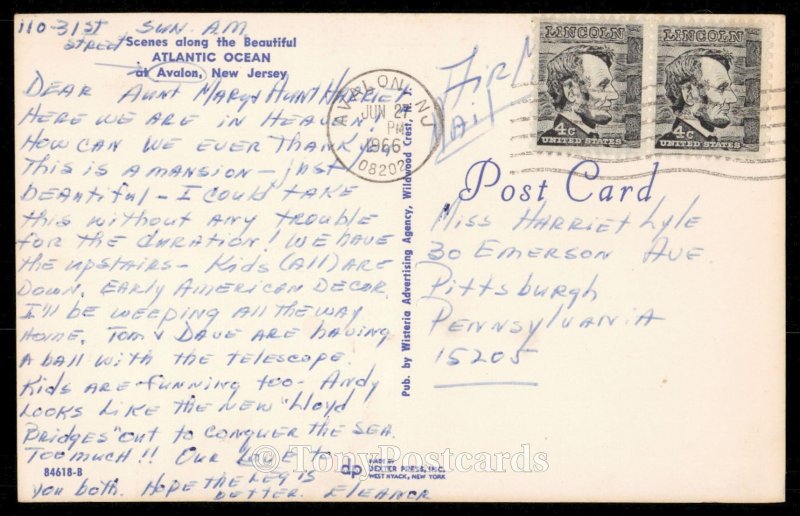 110-31st SUN. A.M
STREET
Scenes along the Beautiful
ATLANTIC OCEAN
at Avalon, New Jersey
DEAR AUNT MARY & AUNT HARRIET
HERE WE ARE IN HEAVEN!
HOW CAN WE EVER THANK
THIS IS A MANSION - JUST
BEAUTIFUL - I COULD TAKE
THIS WITHOUT ANY TROUBLE
FOR THE DURATION! WE HAVE
THE UPSTAIRS - KIDS (ALL) ARE
DOWN. EARLY AMERICAN DECOR.
I'LL BE WEEPING ALL THE WAY
HOME. TOM & DAVE ARE HAVING
A BALL WITH THE TELESCOPE.
KIDS ARE FUNNING TOO - ANDY
LOOKS LIKE THE NEW "LLOYD
BRIDGES" OUT TO CONQUER THE SEA.
TOO MUCH!! OUR LOVE TO
YOU BOTH. HOPE THE LEG IS
BETTER. ELEANOR
84618-B
dp
MADE BY
DEXTER PRESS, INC.
WEST NYACK, NEW YORK
Pub. by Wisteria Advertising Agency, Wildwood Crest, N. J.
AVALON, NJ
JUN 27
PM
1966
08202
Air Mail
LINCOLN
4c
UNITED STATES
LINCOLN
4c
UNITED STATES
Post Card
Miss Harriet Lyle
30 EMERSON AVE.
Pittsburgh
PENNSYLVANIA
15205
©TonyPostcards